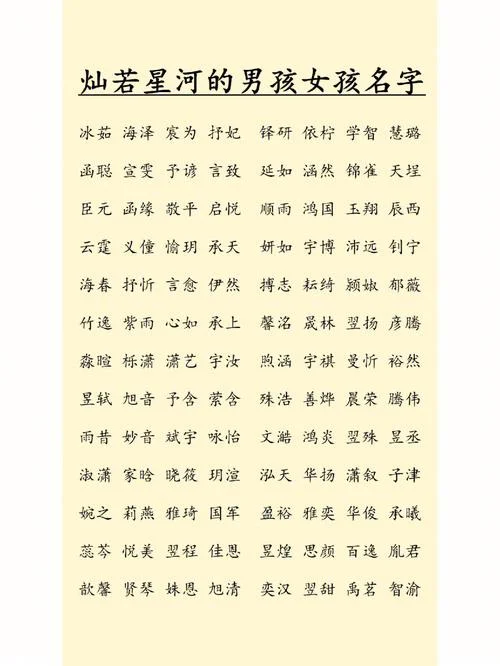 灿若星河的男孩女孩名字
冰茹 海泽 宸为 抒妃 铎研 依柠 学智 慧璐
函聪 宣雯 予谚 言致 延如 涵然 锦雀 天埕
臣元 函缘 敬平 启悦 顺雨 鸿国 玉翔 辰西
云霆 义僮 愉玥 承天 妍如 宇博 沛远 钊宁
海春 抒忻 言愈 伊然 搏志 耘绮 颍娰 郁薇
竹逸 紫雨 心如 承上 馨洺 晟林 翌扬 彦腾
淼暄 栎潇 潇艺 宇汝 煦涵 宇祺 曼忻 裕然
昱轼 旭音 予含 萦含 殊浩 善烨 晨荣 腾伟
雨昔 妙音 斌宇 咏怡 文澔 鸿炎 翌殊 昱丞
淑潇 家晗 晓筱 玥渲 泓天 华扬 潇叙 子津
婉之 莉燕 雅琦 国军 盈裕 雅奕 华俊 承曦
蕊芩 悦美 翌程 佳恩 昱煌 思颜 百逸 胤君
歆馨 贤琴 姝恩 旭清 奕汉 翌甜 禹茗 智渝